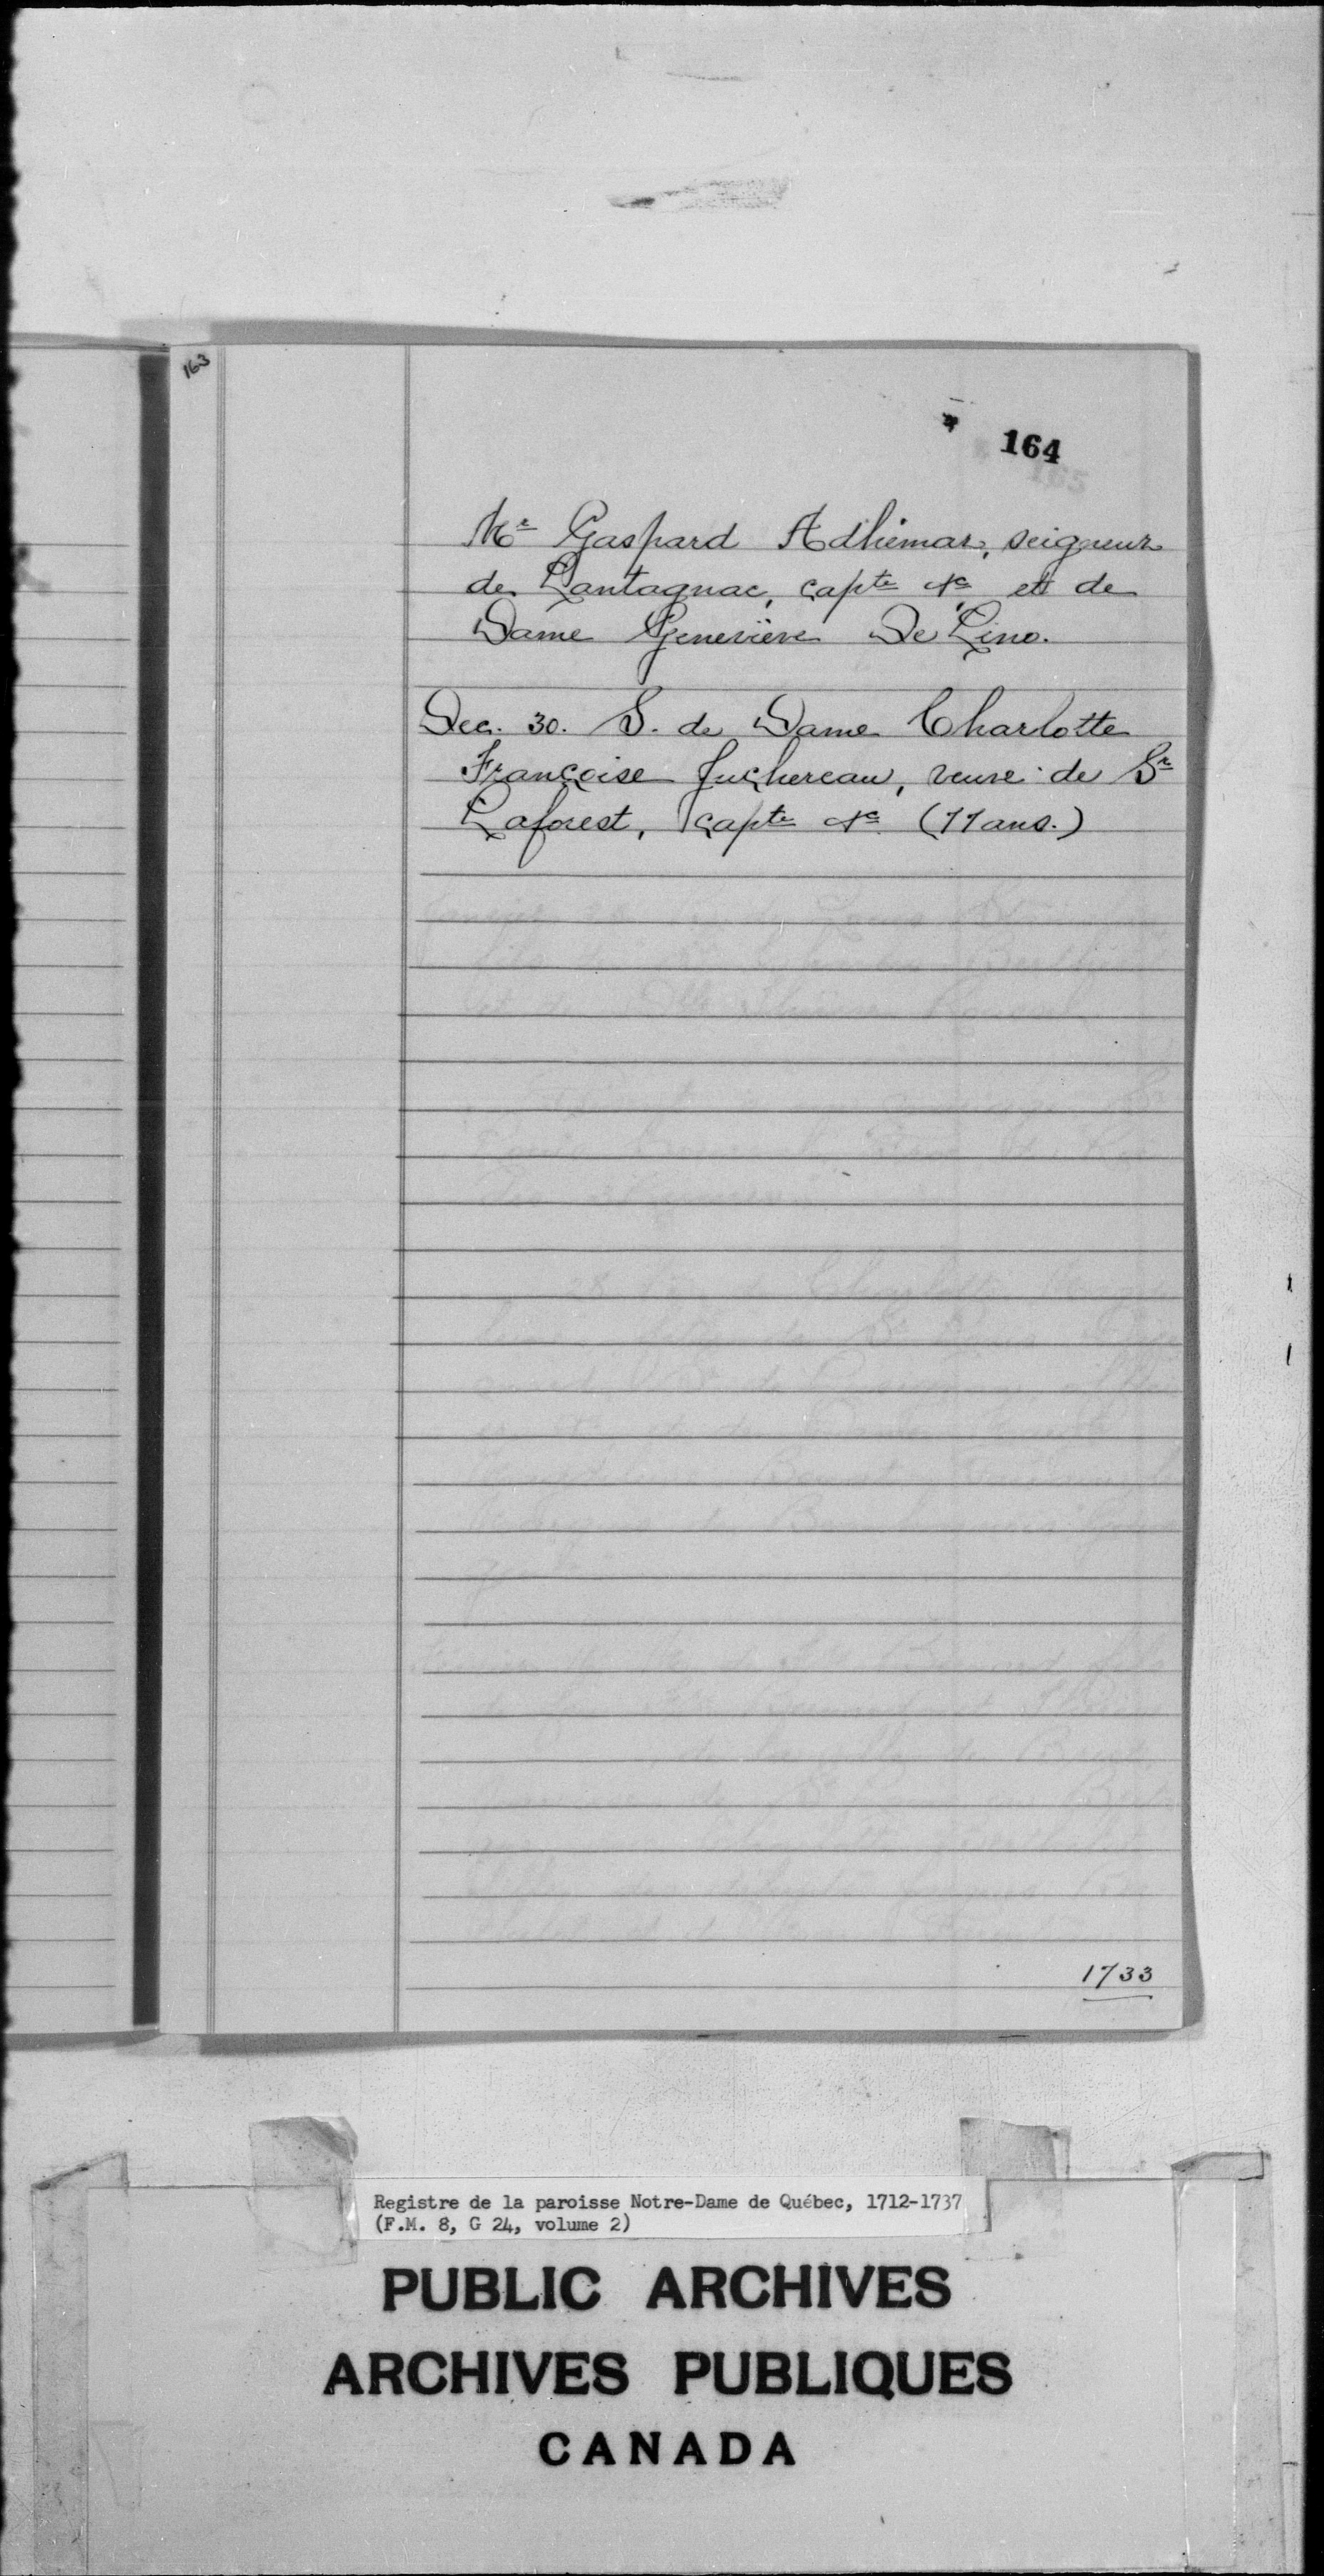 163
164
Mr Gaspard Adhémar, seigneur
de Lantagnac, capte &c et de
Dame Geneviève De Lino.
Dec. 30. S. de Dame Charlotte
Françoise Juchereau, veuve de Sr
Laforest, capte &c (77 ans.)
1733
Registre de la paroisse Notre-Dame de Québec, 1712-1737
(F.M. 8, G 24, volume 2)
PUBLIC ARCHIVES
ARCHIVES PUBLIQUES
CANADA